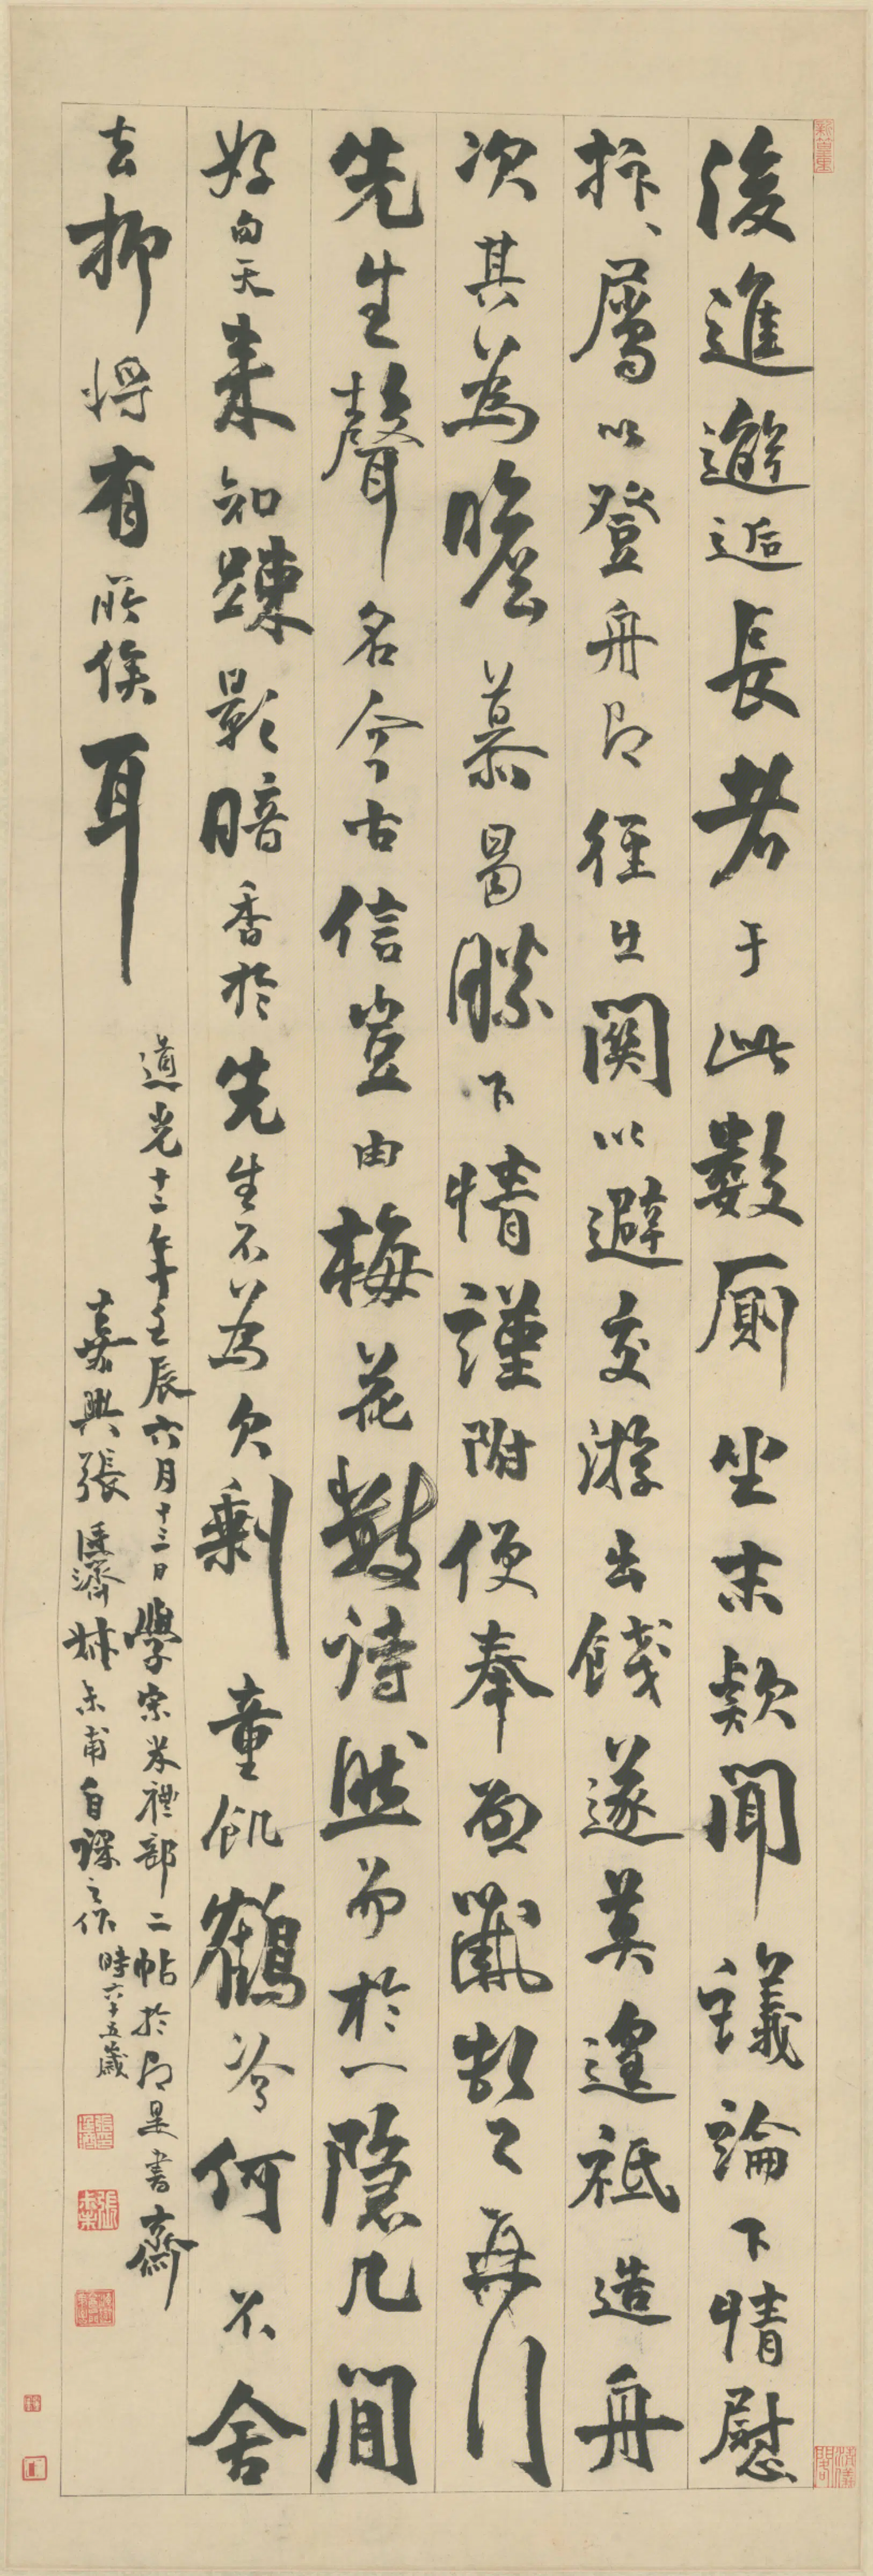 後進邂逅長者于此數厠坐末款聞議論下情慰
抃屬以登舟即徑出關以避交游出餞遂莫遑祇造舟
次其為瞻慕曷勝下情謹附便奉啟
先生聲名今古信豈由梅花數詩然而於一隱几間
好句天來知踈影暗香於先生不為欠剩童飢鶴冷何不舍
去抑將有所俟耳
道光十二年壬辰六月十三日學宋米禮部二帖於即是書齋
嘉興張廷濟叔未甫自課之作時六十五歲
張廷濟
張叔未